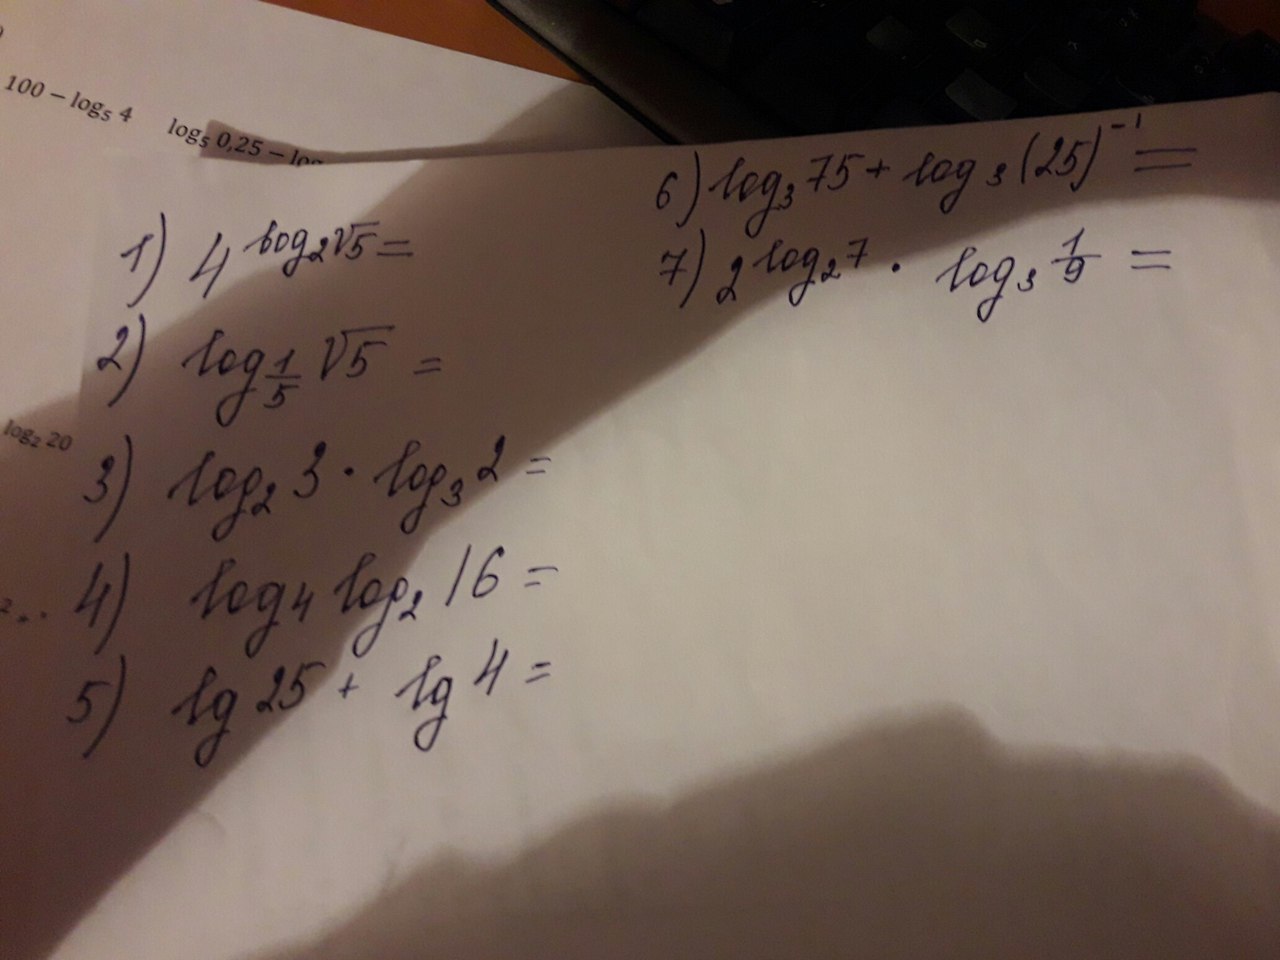 100 − log₅ 4 log₅ 0,25 −
log₂ 20
1) 4^(log₂ √5) =
2) log_(1/5) √5 =
3) log₂ 3 · log₃ 2 =
4) log₄ log₂ 16 =
5) lg 25 + lg 4 =
6) log₃ 75 + log₃ (25)⁻¹ =
7) 2^(log₂ 7) · log₃ 1/9 =